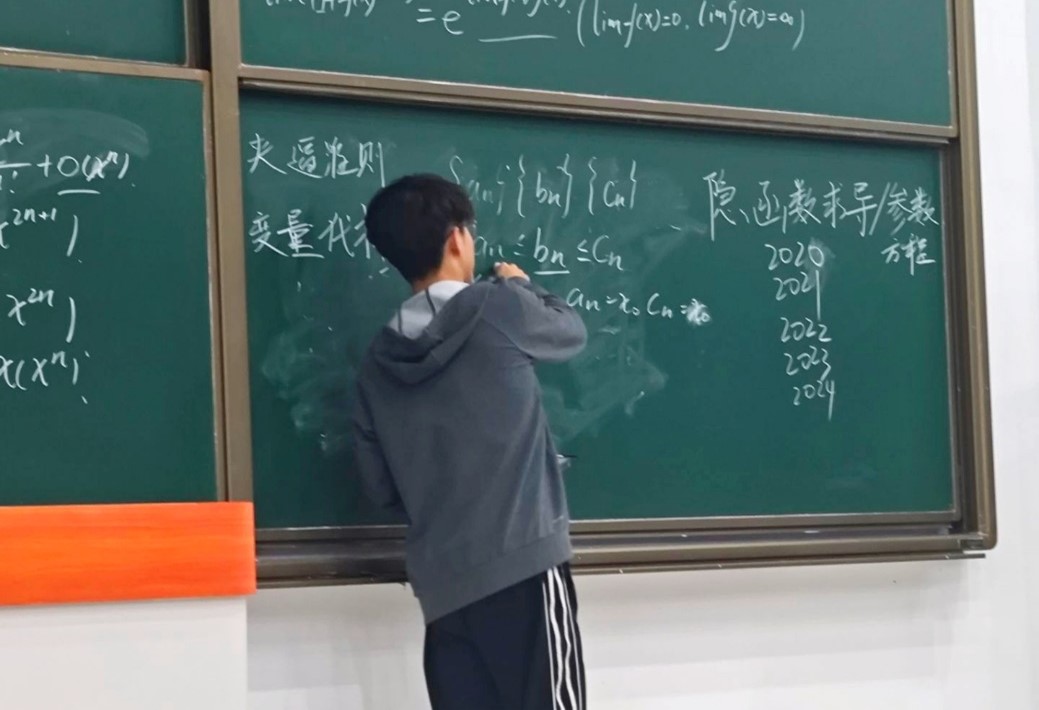 = e (lim f(x)=0, lim g(x)=∞)
+ο(xⁿ)
x²ⁿ⁺¹)
x²ⁿ)
(xⁿ)
夹逼准则 {bn} {cn}
变量代
an ≤ bn ≤ cn
an = x₀ cn = x₀
隐函数求导/参数
方程
2020
2021
2022
2023
2024